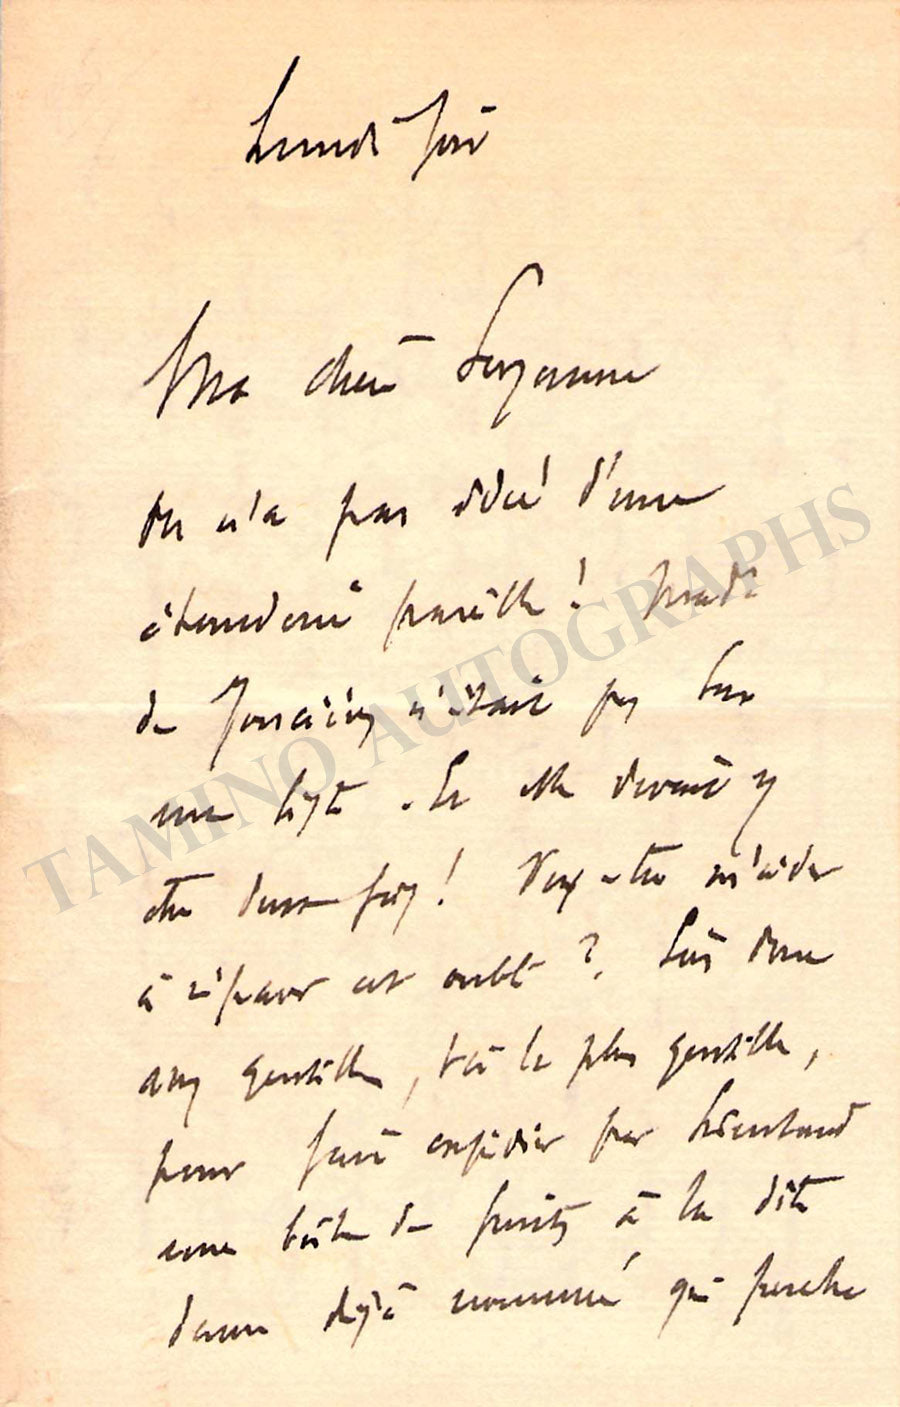 Lundi soir
Ma chère Suzanne
On n'a pas idée d'une
étourderie pareille ! Made
de Joncières n'était pas sur
ma liste. Et elle devait y
être deux fois ! Veux-tu m'aider
à réparer cet oubli ? Sois donc
assez gentille, toi la plus gentille,
pour faire expédier par
une boîte de fruits à la dite
dame déjà nommée qui perche
TAMINO AUTOGRAPHS